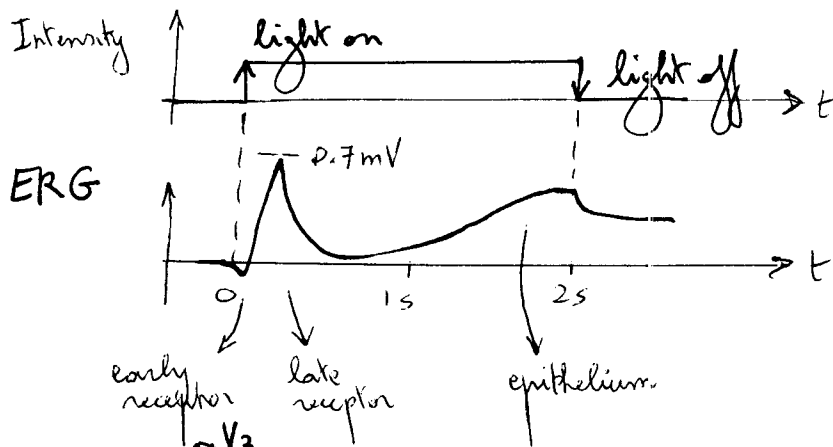 Intensity
light on
light off
t
0.7mV
ERG
t
0
1s
2s
early receptor
late receptor
epithelium.
~ V3